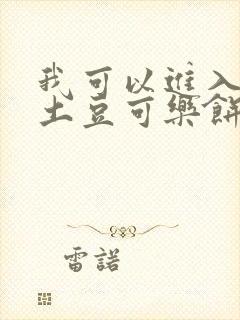 我可以進入
土豆可樂餅
雷諾